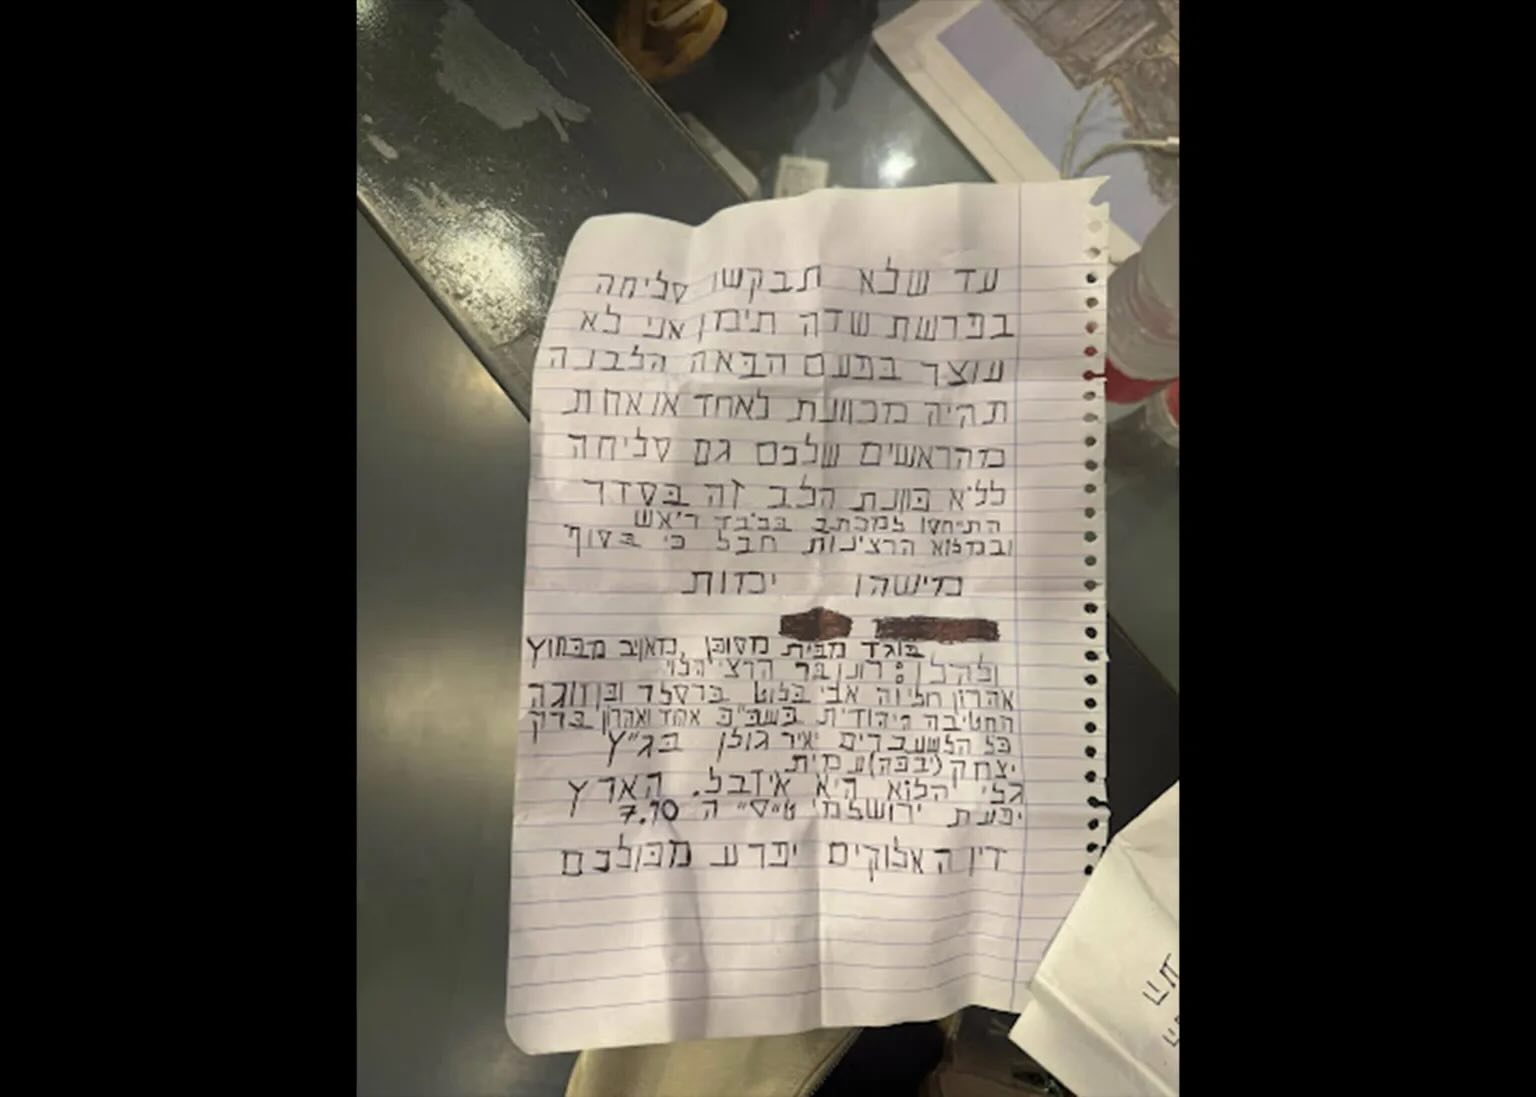 עד שלא תבקשו סליחה
בפרשת שדה תימן אני לא
עוצר בפעם הבאה הלבנה
תהיה מכוונת לאחד או אחת
מהראשים שלכם גם סליחה
ללא כוונת הלב זה בסדר
התיחסו למכתב בכובד ראש
ובמלוא הרצינות חבל כי בסוף
מישהו ימות
בוגד מבית מסוכן מאויב מבחוץ
ולהלן: רונן בר הרצי הלוי
אהרון חליוה אבי בלוט ברסלר ובן זוגה
החטיבה היהודית בשב"כ אהוד ואהרון ברק
כל הלשעברים יאיר גולן בג"ץ
יצחק (יבכה) עמית
גלי יהלוא היא איזבל. הארץ
יפעת ירושלמי ט"ס" ה 7.10
דין האלוקים יפרע מכולכם